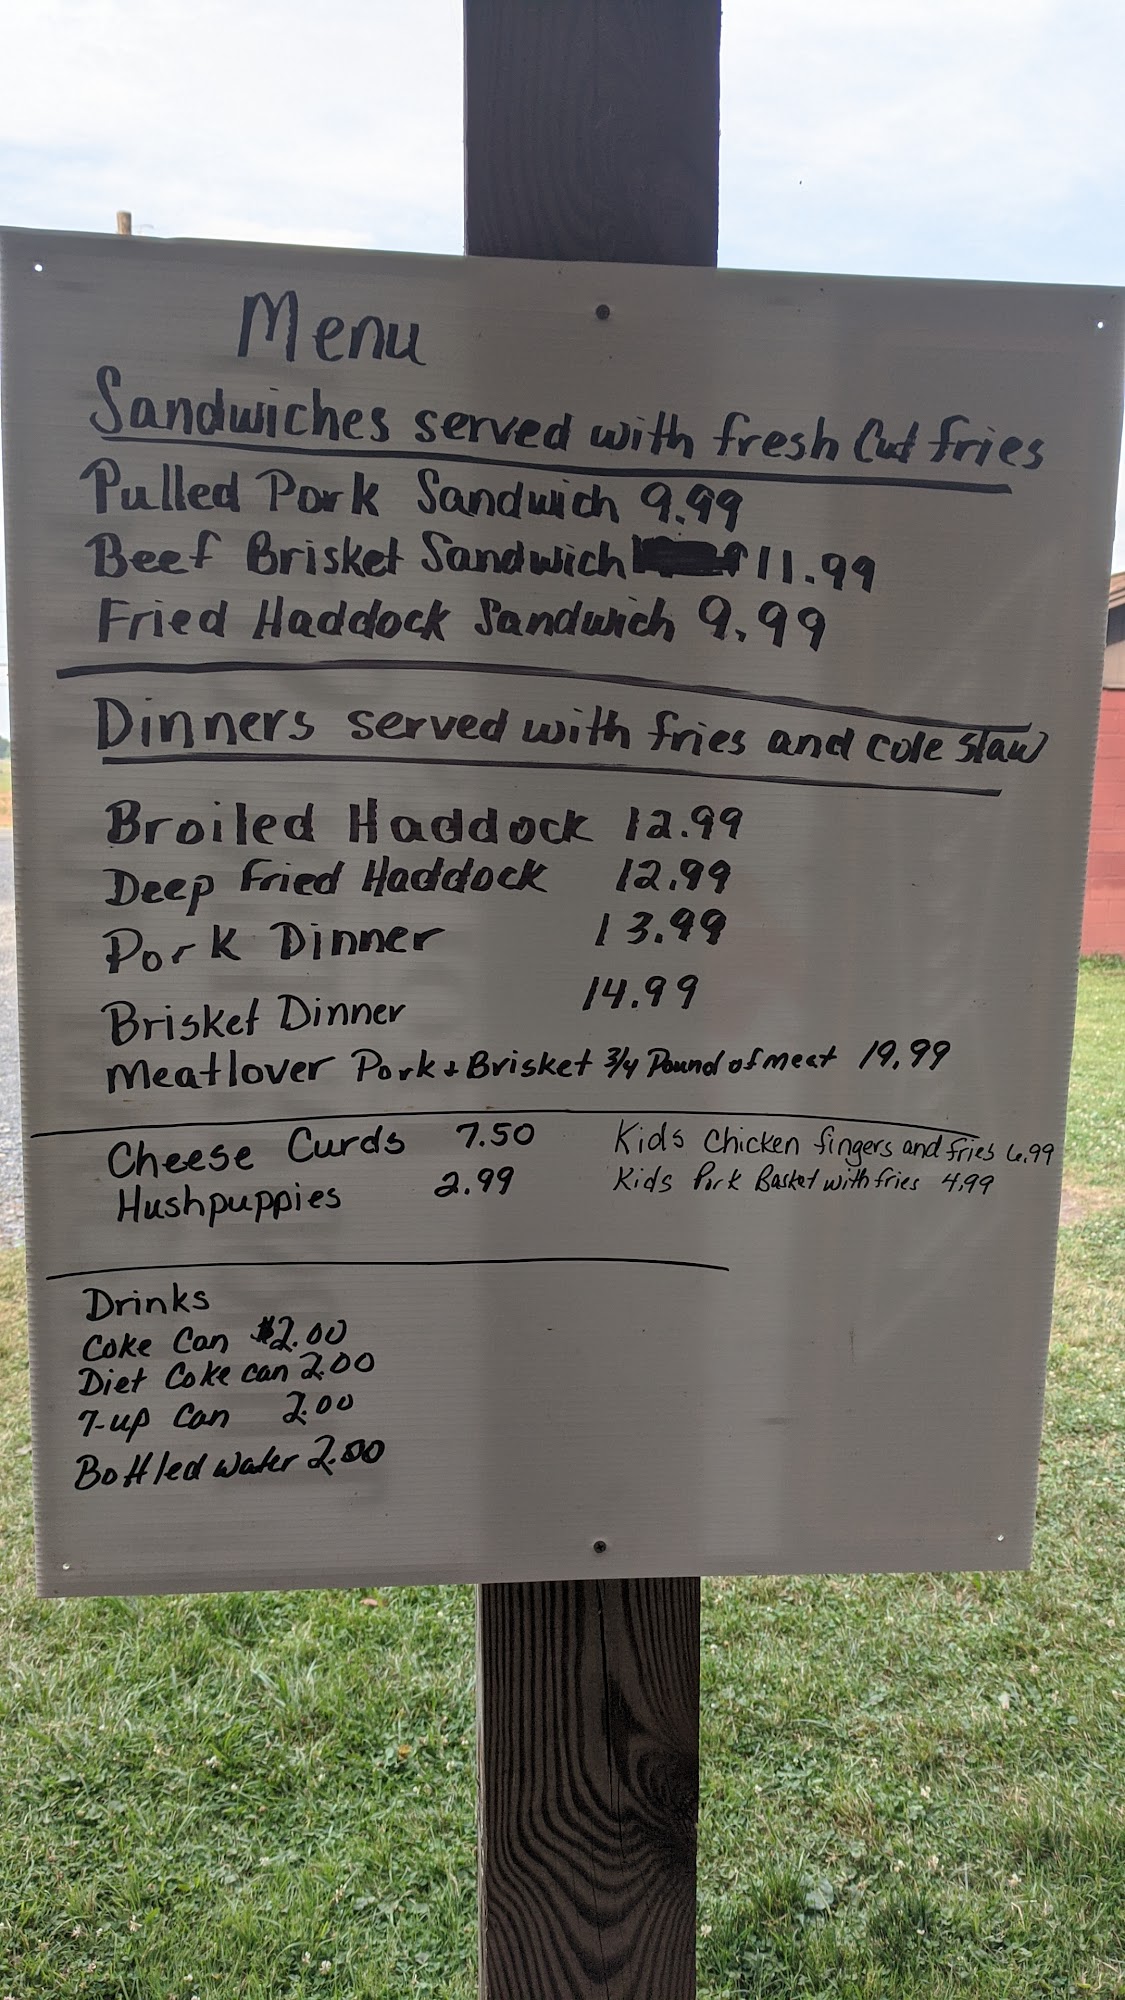 Menu
Sandwiches served with fresh Cut fries
Pulled Pork Sandwich 9.99
Beef Brisket Sandwich 11.99
Fried Haddock Sandwich 9.99
Dinners served with fries and cole slaw
Broiled Haddock 12.99
Deep Fried Haddock 12.99
Pork Dinner 13.99
Brisket Dinner 14.99
Meatlover Pork + Brisket 3/4 Pound of meat 19.99
Cheese Curds 7.50
Hushpuppies 2.99
Kids Chicken fingers and fries 6.99
Kids Pork Basket with fries 4.99
Drinks
Coke Can $2.00
Diet Coke can 2.00
7-up Can 2.00
Bottled water 2.00